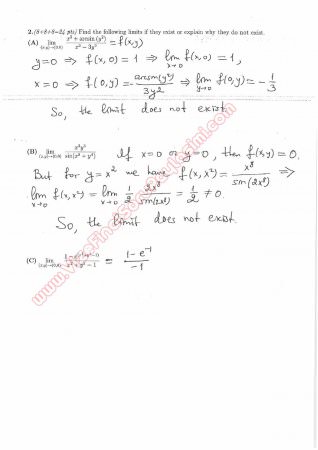 2.(8+8+8=24 pts) Find the following limits if they exist or explain why they do not exist.
(A) lim (x,y)→(0,0) x² + arcsin(y²) / x² − 3y² = f(x,y)
y=0 ⇒ f(x,0) = 1 ⇒ lim x→0 f(x,0) = 1,
x=0 ⇒ f(0,y) = − arcsin(y²) / 3y² ⇒ lim y→0 f(0,y) = − 1/3
So, the limit does not exist.
(B) lim (x,y)→(0,0) / sin(x⁸ + y⁴) If x=0 or y=0, then f(x,y)=0.
But for y=x² we have f(x,x²) = x⁸ / sin(2x⁸) ⇒
lim x→0 f(x,x²) = lim x→0 1/2 2x⁸ / sin(2x⁸) = 1/2 ≠ 0.
So, the limit does not exist.
(C) lim = 1 − e⁻¹ / −1